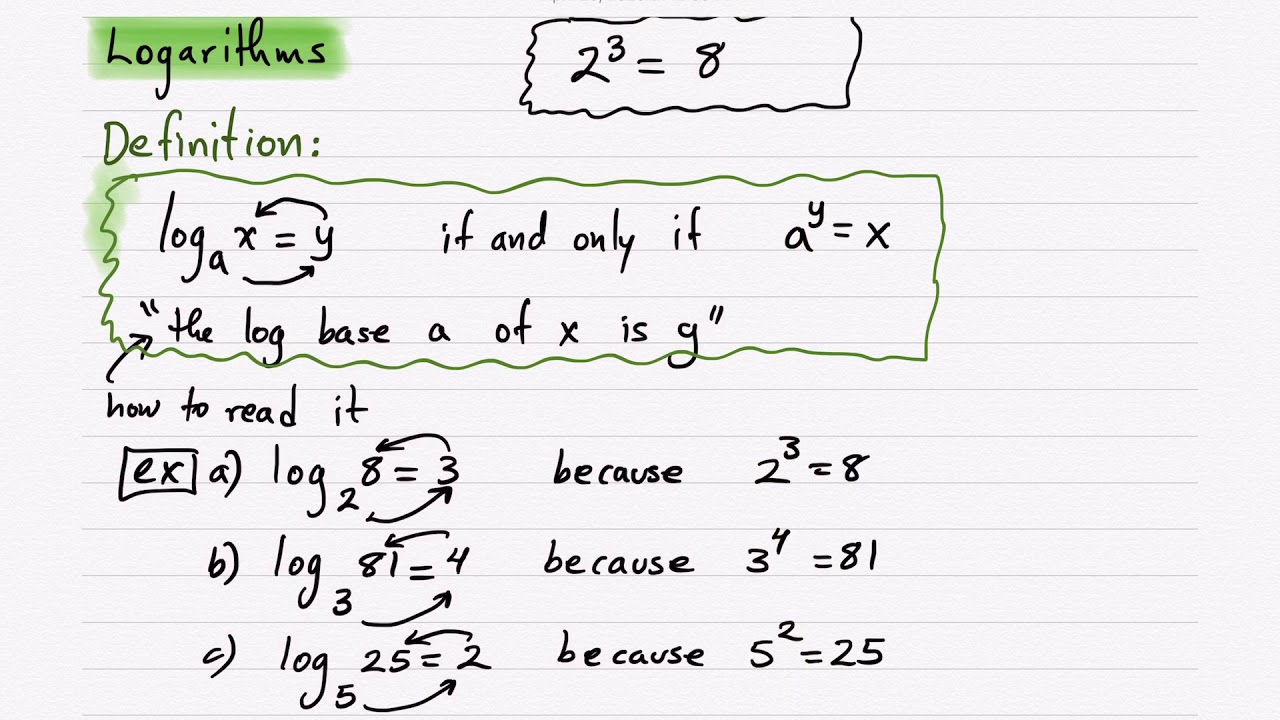 Logarithms
2³ = 8
Definition:
logₐ x = y if and only if aʸ = x
"the log base a of x is y"
how to read it
ex a) log₂ 8 = 3 because 2³ = 8
b) log₃ 81 = 4 because 3⁴ = 81
c) log₅ 25 = 2 because 5² = 25